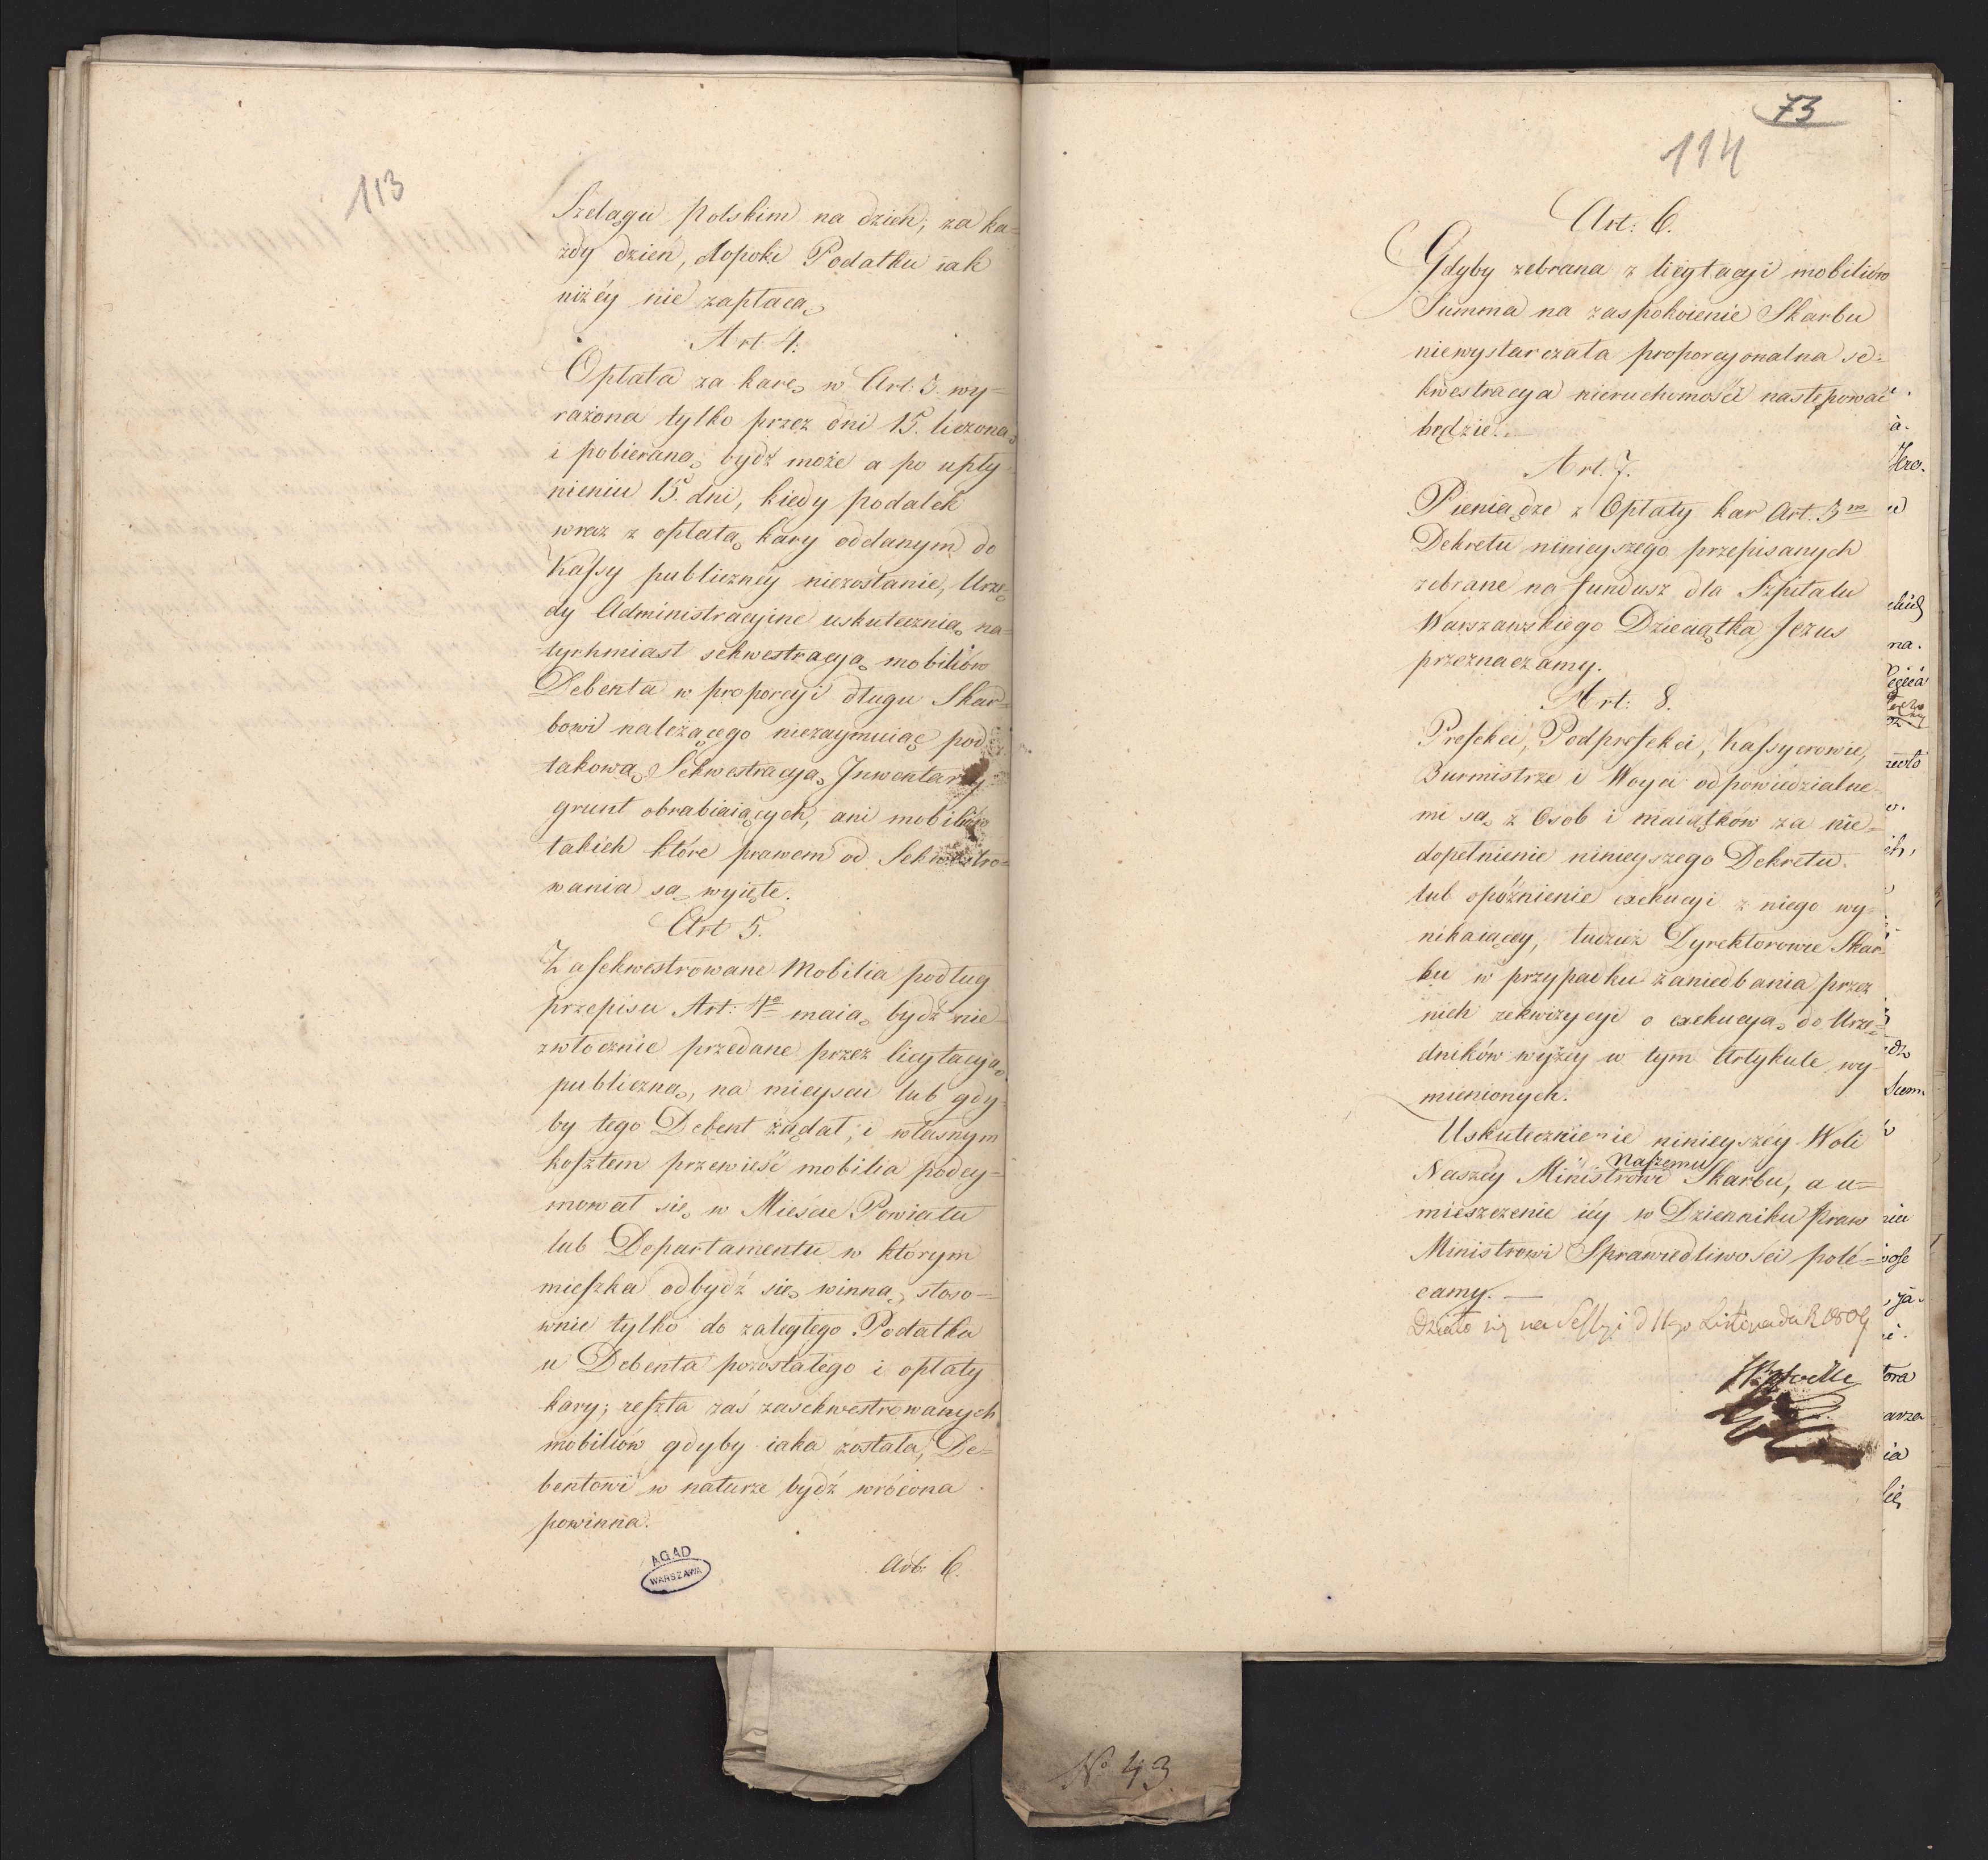 113
Szelągu polskim na dzień, za ka=
żdy dzień, dopoki Podatku iak
niżéy nie zapłacą
Art. 4.
Opłata za karę w Art: 3. wy=
rażona tylko przez dni 15. liczoną
i pobieraną bydź może a po upły=
nieniu 15. dni, kiedy podatek
wraz z opłatą kary oddanym do
Kassy publiczney niezostanie, Urzę=
dy Administracyine uskutecznią na=
tychmiast sekwestracyą mobiliów
Debenta w proporcyi długu Skar=
bowi należącego niezaymuiąc pod
takową Sekwestracyą Inwentarzy
grunt obrabiaiących, ani mobiliów
takich które prawem od Sekwestro=
wania są wyięte.
Art 5.
Zasekwestrowane Mobilia podług
przepisu Art: 4º maią bydź nie
zwłocznie przedane przez licytacyą
publiczną, na mieyscu lub gdy=
by tego Debent żądał, i własnym
kosztem przewieść mobilia podey=
mował się w Mieście Powiatu
lub Departamentu w którym
mieszka odbydź się winna, stoso=
wnie tylko do zaległego Podatku
u Debenta pozostałego i opłaty
kary; reszta zaś zasekwestrowanych
mobiliów gdyby iaka została, De=
bentowi w naturze bydź wrócona
powinna.
Art: 6.
AGAD
WARSZAWA
73
114
Art: 6.
Gdyby zebrana z licytacyi mobiliów
Summa na zaspokoienie Skarbu
niewystarczała proporcyonalna se=
kwestracya nieruchomości następować
będzie.
Art. 7.
Pieniądze z Opłaty kar Art. 3m
Dekretu ninieyszego przepisanych
zebrane na fundusz dla Szpitalu
Warszawskiego Dzieciątka Jezus
przeznaczamy.
Art: 8.
Prefekci, Podprefekci, Kassyerowie,
Burmistrze i Woyci odpowiedzialne=
mi są z Osob i maiątków za nie=
dopełnienie ninieyszego Dekretu.
lub opóźnienie exekucyi z niego wy=
nikaiącéy, tudzież Dyrektorowie Skar=
bu w przypadku zaniedbania przez
nich rekwizycyi o exekucyą do Urzę=
dników wyżéy w tym Artykule wy=
mienionych.
Uskutecznienie ninieyszéy Woli
Naszéy Ministrowi Naszemu Skarbu, a u=
mieszczenie iéy w Dzienniku Praw
Ministrowi Sprawiedliwości polé=
camy. —
Działo się na Sessyi d 11go Listopada R 1809
No 43.